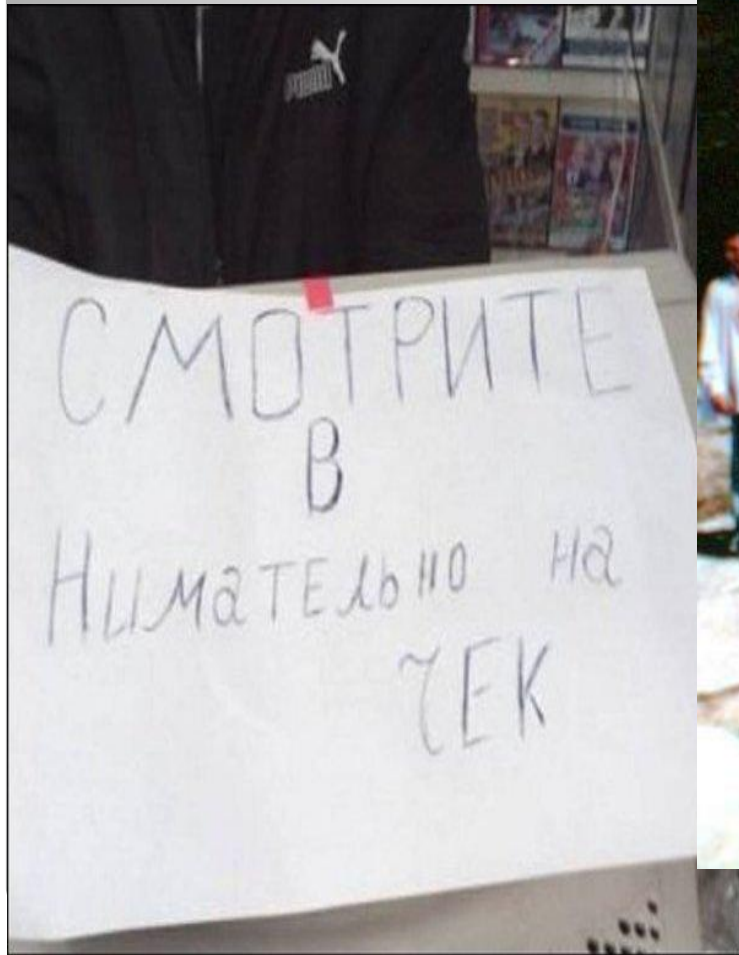 PUMA
СМОТРИТЕ
В
НИМАТЕЛЬНО НА
ЧЕК